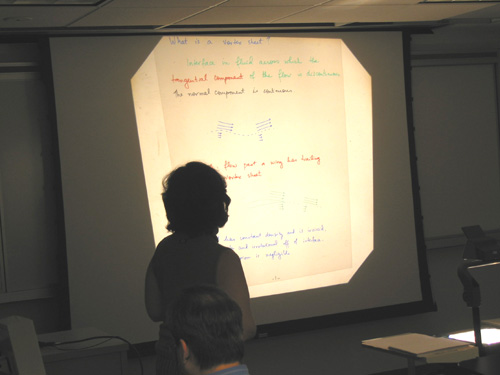 What is a vortex sheet?
Interface in fluid across which the
tangential component of the flow is discontinuous
the normal component is continuous
flow past a wing has trailing
vortex sheet
has constant density and is inviscid,
and irrotational off of interface
is negligible